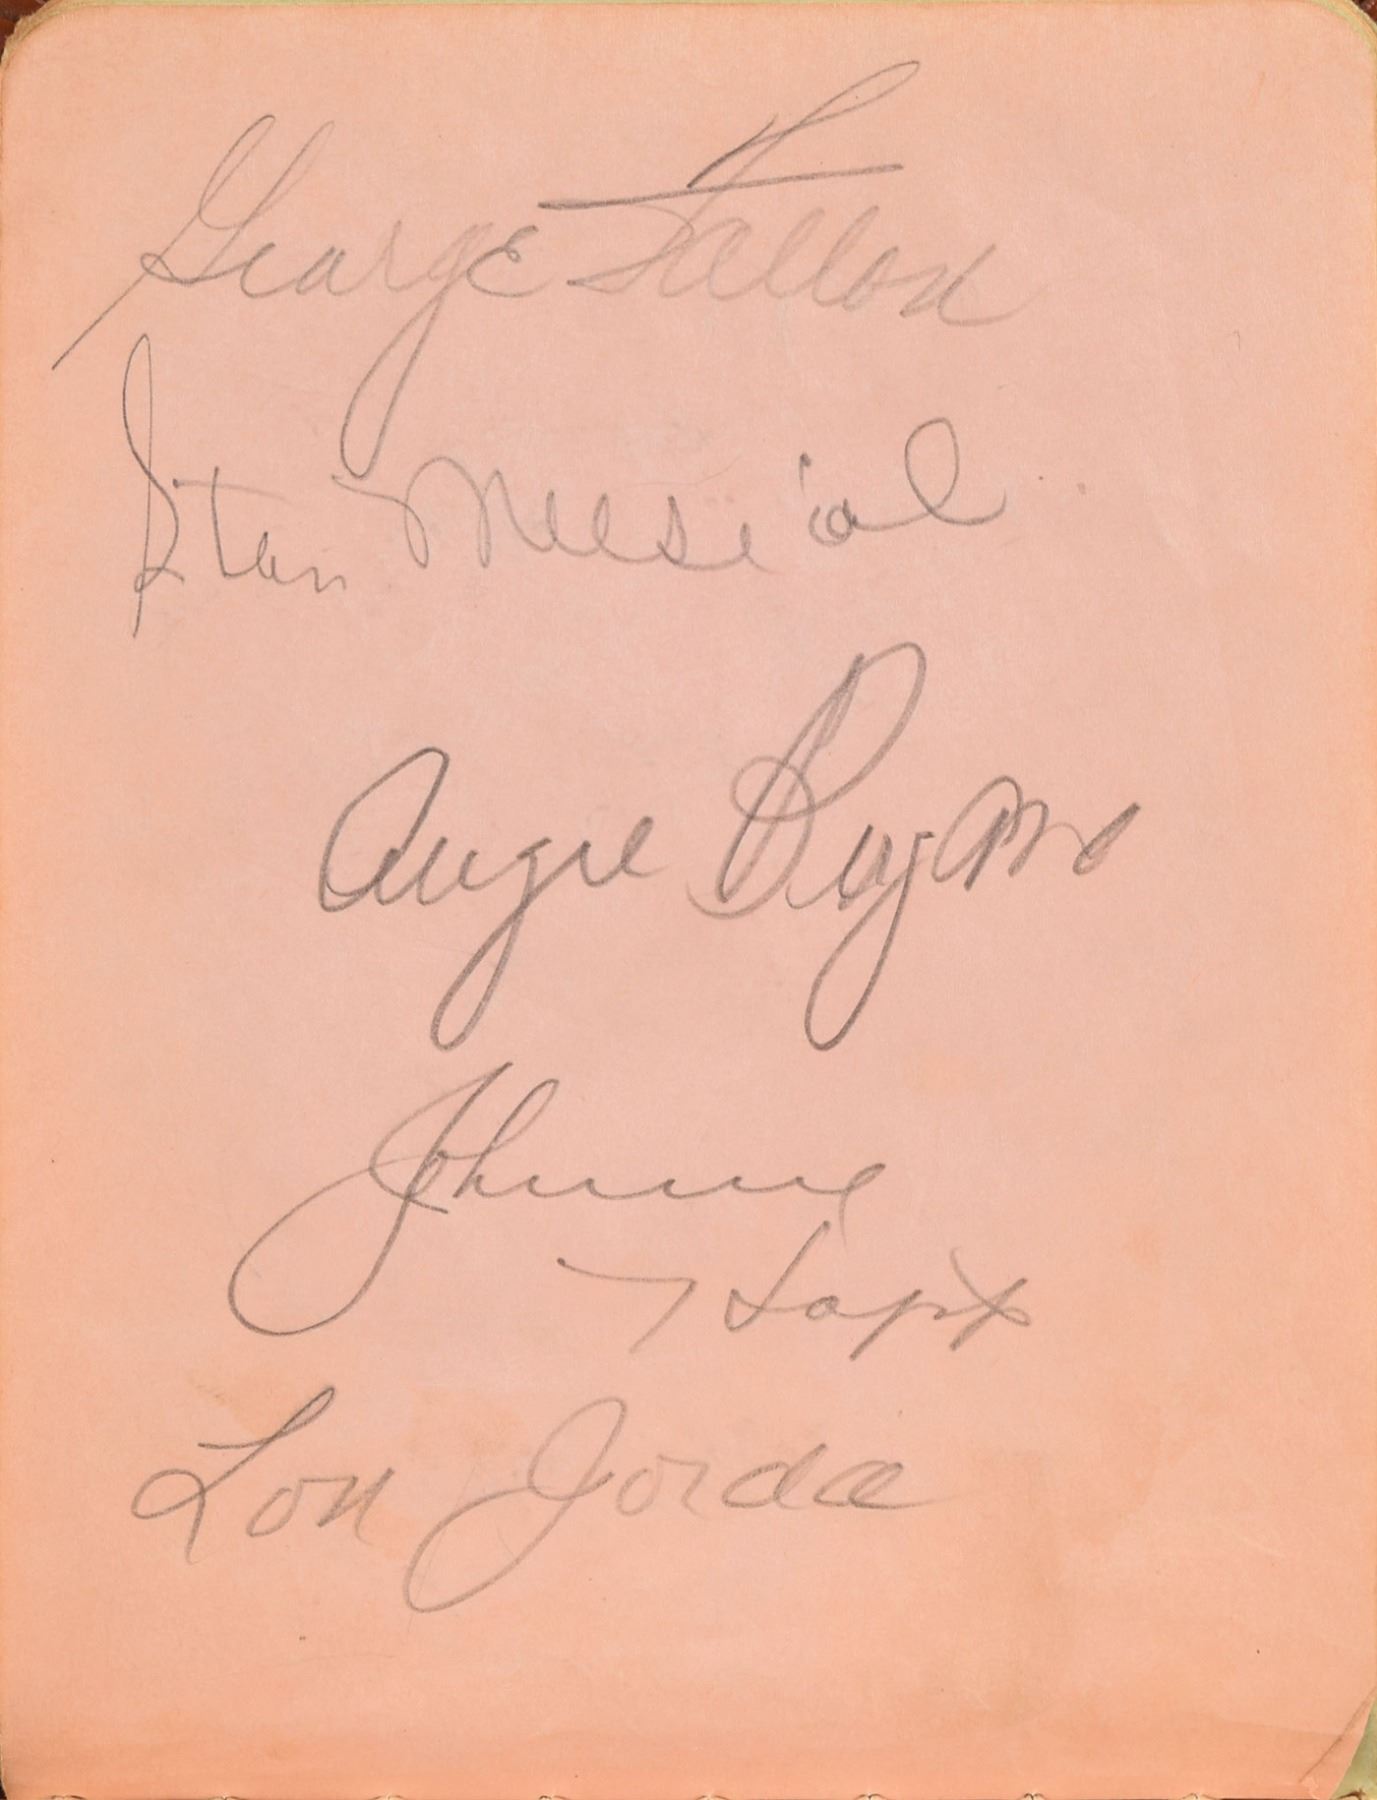 George Fallon
Stan Musial
Augie Bergamo
Johnnie
Hopp
Lou Jorda